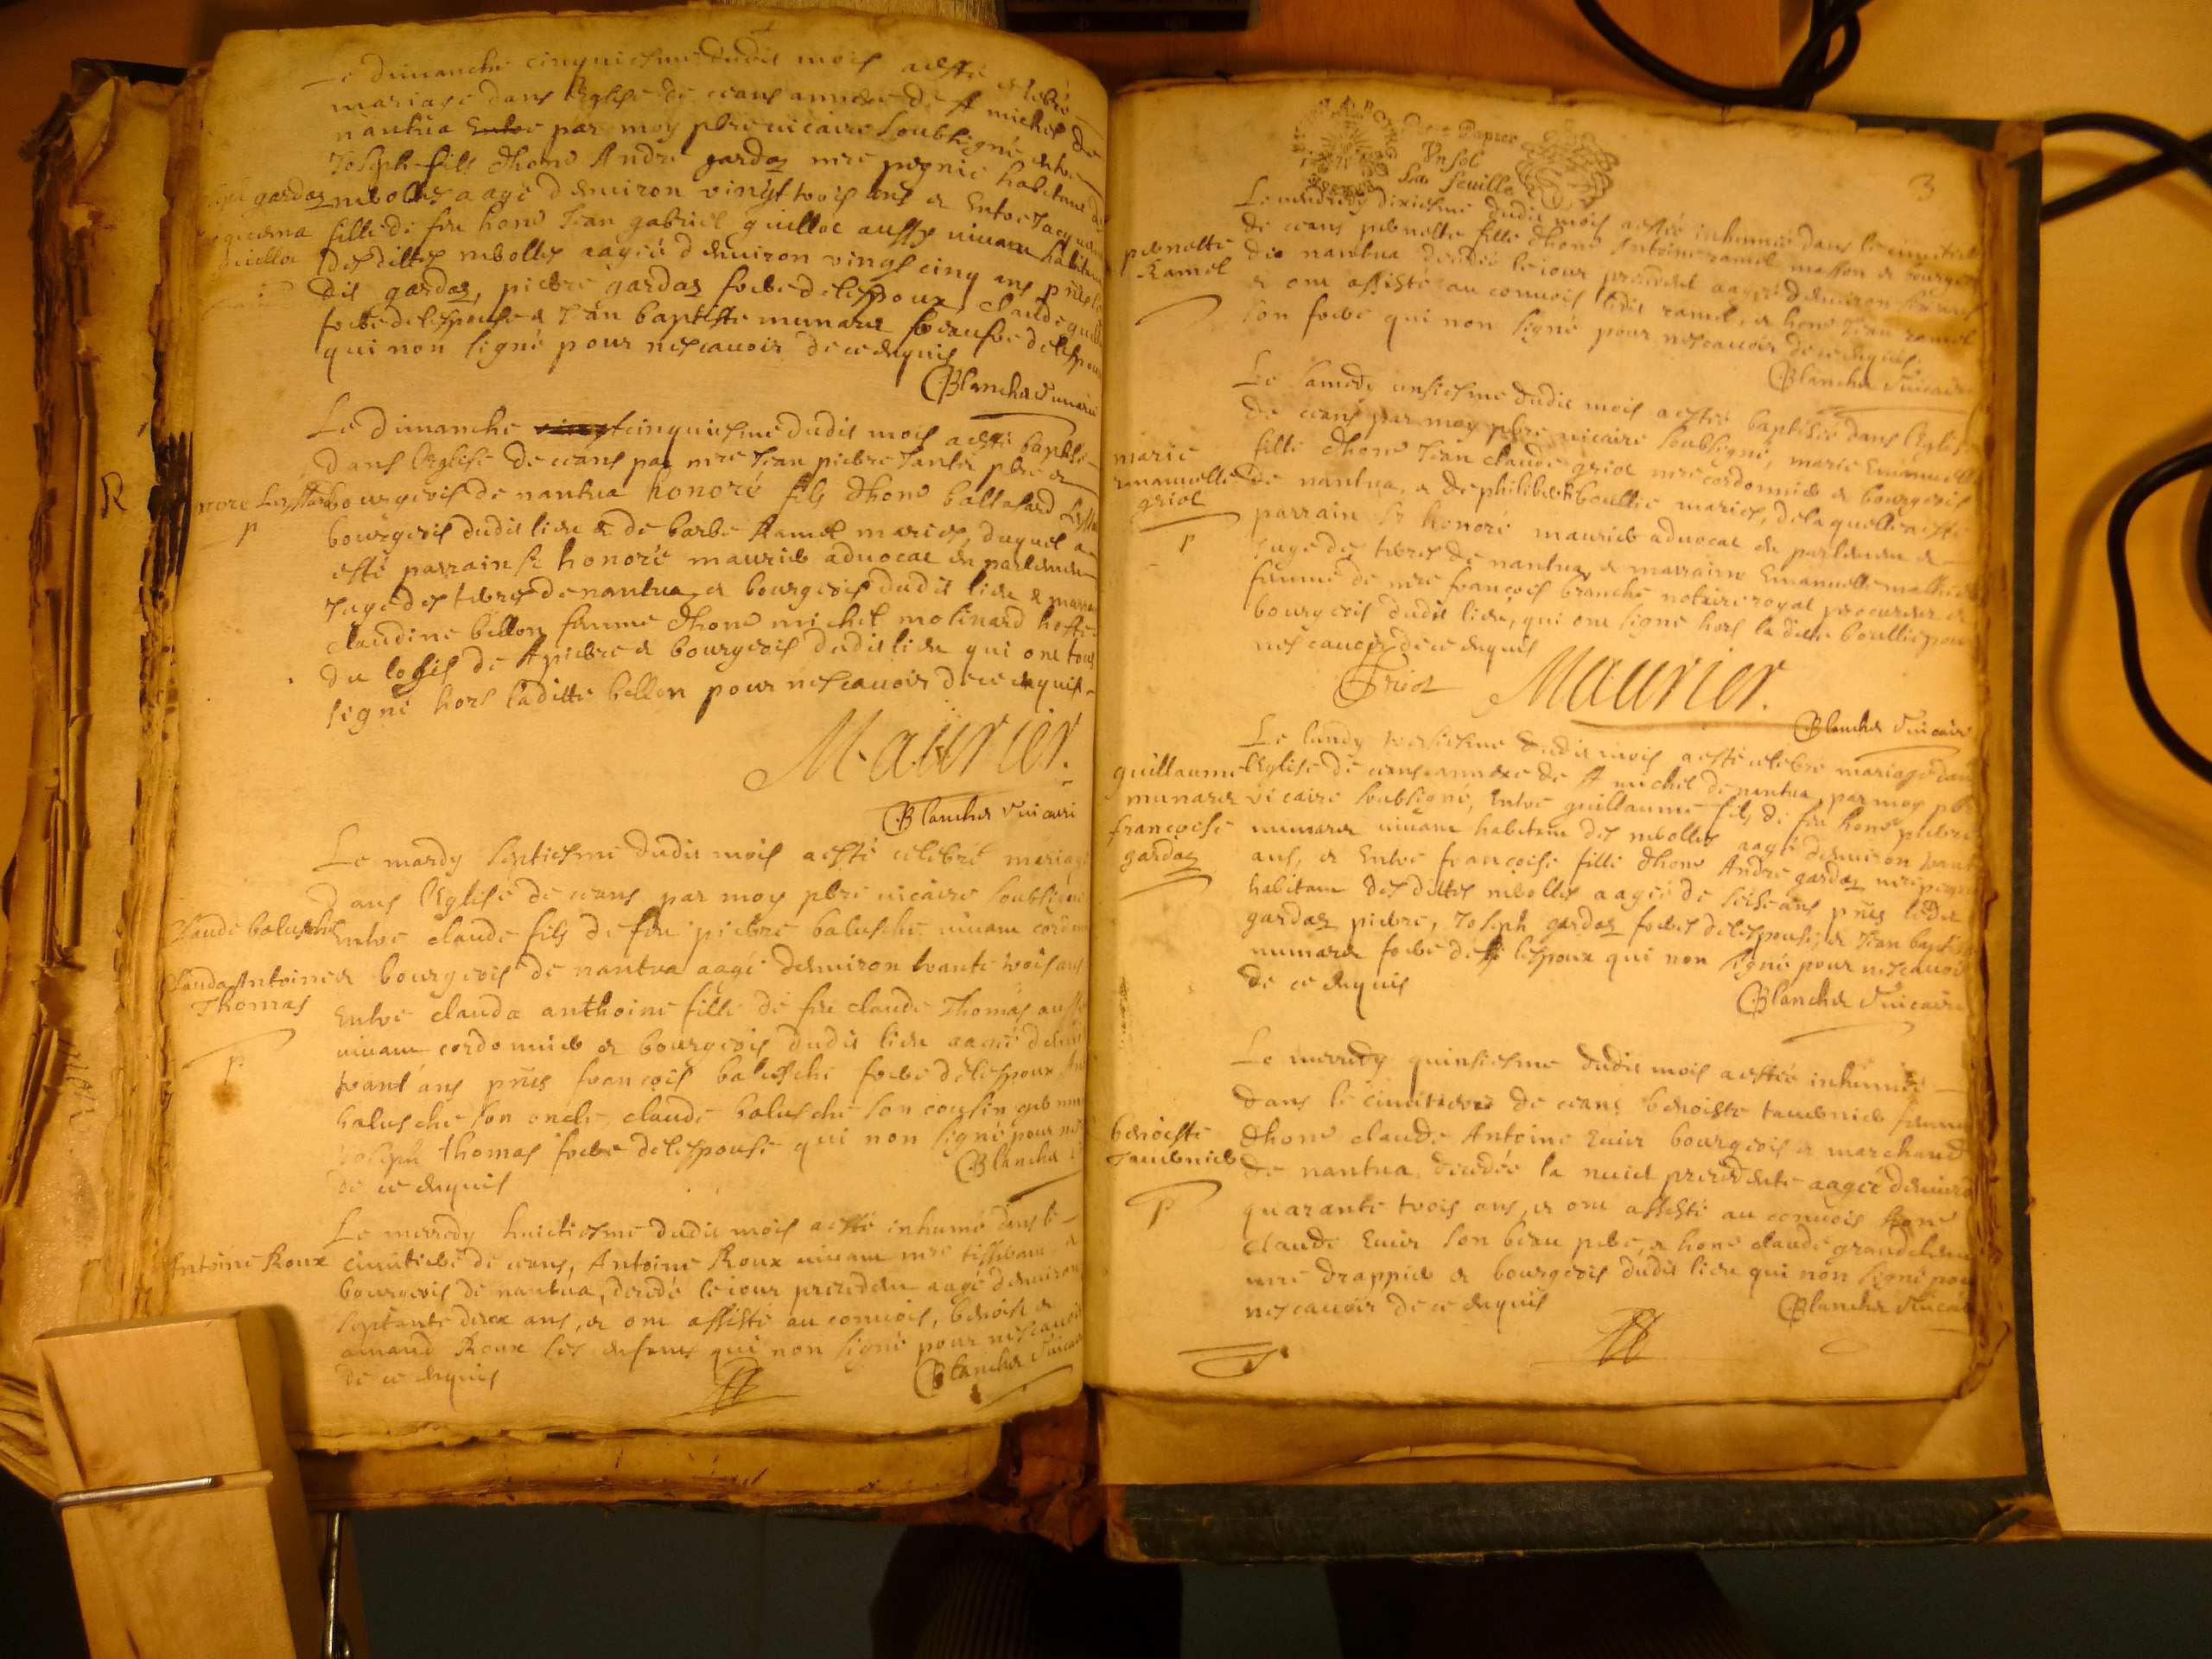 Le dimanche cinquiesme dudit mois a esté celebré
mariage dans l'Eglise de ceans annexe de st michel de
nantua par moy pbre vicaire soubsigné entre
Joseph fils d'hono André gardaz mre pegnie habitant de
nibolles aagé d'environ vingt trois ans et Entre
fille de feu hono Jean gabriel guillot aussy vivant habitant
desdittes nibolles aagée d'environ vingt cinq ans pnts
dit gardaz, pierre gardaz frere de l'espoux, claude
frere de l'espouse et Jean baptiste munaret beaufre de l'espoux
qui n'ont signé pour ne scavoir de ce enquis
Blanchet vicaire
Le Dimanche cinquiesme dudit mois a esté baptisé
dans l'Eglise de ceans par mre Jean pierre Jantet pbre et
bourgeois de nantua honoré fils d'hono baltasard
bourgeois dudit lieu et de barbe Ramel mariés, duquel a
esté parrain sr honoré maurier advocat en parlement
Juge des terres de nantua et bourgeois dudit lieu et
claudine bellon femme d'hono michel molinard hoste
du logis de st pierre et bourgeois dudit lieu qui ont tous
signé hors laditte bellon pour ne scavoir de ce enquis
Maurier.
Blanchet vicaire
Le mardy septiesme dudit mois a esté celebré mariage
dans l'Eglise de ceans par moy pbre vicaire soubsigné
claude balusche
Entre claude fils de feu pierre balusche vivant
et bourgeois de nantua aagé d'environ trante trois ans
clauda Antoine
Thomas
Entre clauda anthoine fille de feu claude Thomas aussy
vivant cordonnier et bourgeois dudit lieu aagée d'environ
trant'ans pnts francois balusche frere de l'espoux
balusche son oncle, claude balusche son cousin germain
Joseph thomas frere de l'espouse qui n'ont signé pour ne
de ce enquis
Blanchet
Le mercredy huictiesme dudit mois a esté inhumé dans le
Antoine Roux
cimitiere de ceans, Antoine Roux vivant mre tisserant et
bourgeois de nantua, decedé le iour precedent aagé d'environ
septante deux ans, et ont assisté au convois, benoist et
amand Roux ses enfans qui n'ont signé pour ne scavoir
de ce enquis
Blanchet vicaire
Petit Papier
Un sol
La feuille
3
Le vendredy dixiesme dudit mois a estée inhumée dans le cimitiere
pernette
Ramel
de ceans pernette fille d'hono Antoine ramel masson et bourgeois
de nantua decedée le iour precedent aagée d'environ
et ont assisté au convois ledit ramel, et hono Jean ramel
son frere qui n'ont signé pour ne scavoir de ce enquis.
Blanchet vicaire
Le samedy unsiesme dudit mois a estée baptisée dans l'Eglise
de ceans par moy pbre vicaire soubsigné, marie Emanuelle
marie
emanuelle
griot
fille d'hono Jean claude griot mre cordonnier et bourgeois
de nantua, et de philiberte boullié mariés, de laquelle a esté
parrain sr honoré maurier advocat en parlement et
Juge des terres de nantua, et marraine Emanuelle
femme de mre francois branche notaire royal procureur et
bourgeois dudit lieu, qui ont signé hors la ditte boullié pour
ne scavoir de ce enquis
Griot Maurier.
Blanchet vicaire
Le lundy tresiesme dudit mois a esté celebré mariage dans
guillaume
munaret
francoise
gardaz
l'Eglise de ceans annexe de st michel de nantua, par moy pbre
vicaire soubsigné, Entre guillaume fils de feu hono pierre
munaret vivant habitant des nibolles aagé d'environ trante
ans, et Entre francoise fille d'hono André gardaz mre
habitant desdittes nibolles aagée de seise ans pnts ledit
gardaz pierre, Joseph gardaz freres de l'espouse, et Jean baptiste
munaret frere de l'espoux qui n'ont signé pour ne scavoir
de ce enquis
Blanchet vicaire
Le mercredy quinsiesme dudit mois a estée inhumée
dans le cimitiere de ceans benoiste tavernier femme
benoiste
Tavernier
d'hono claude Antoine Euier bourgeois et marchand
de nantua decedée la nuict precedente aagée d'environ
quarante trois ans, et ont assisté au convois hono
claude Euier son beau pere, et hono claude
mre drappier et bourgeois dudit lieu qui n'ont signé pour
ne scavoir de ce enquis
Blanchet vicaire